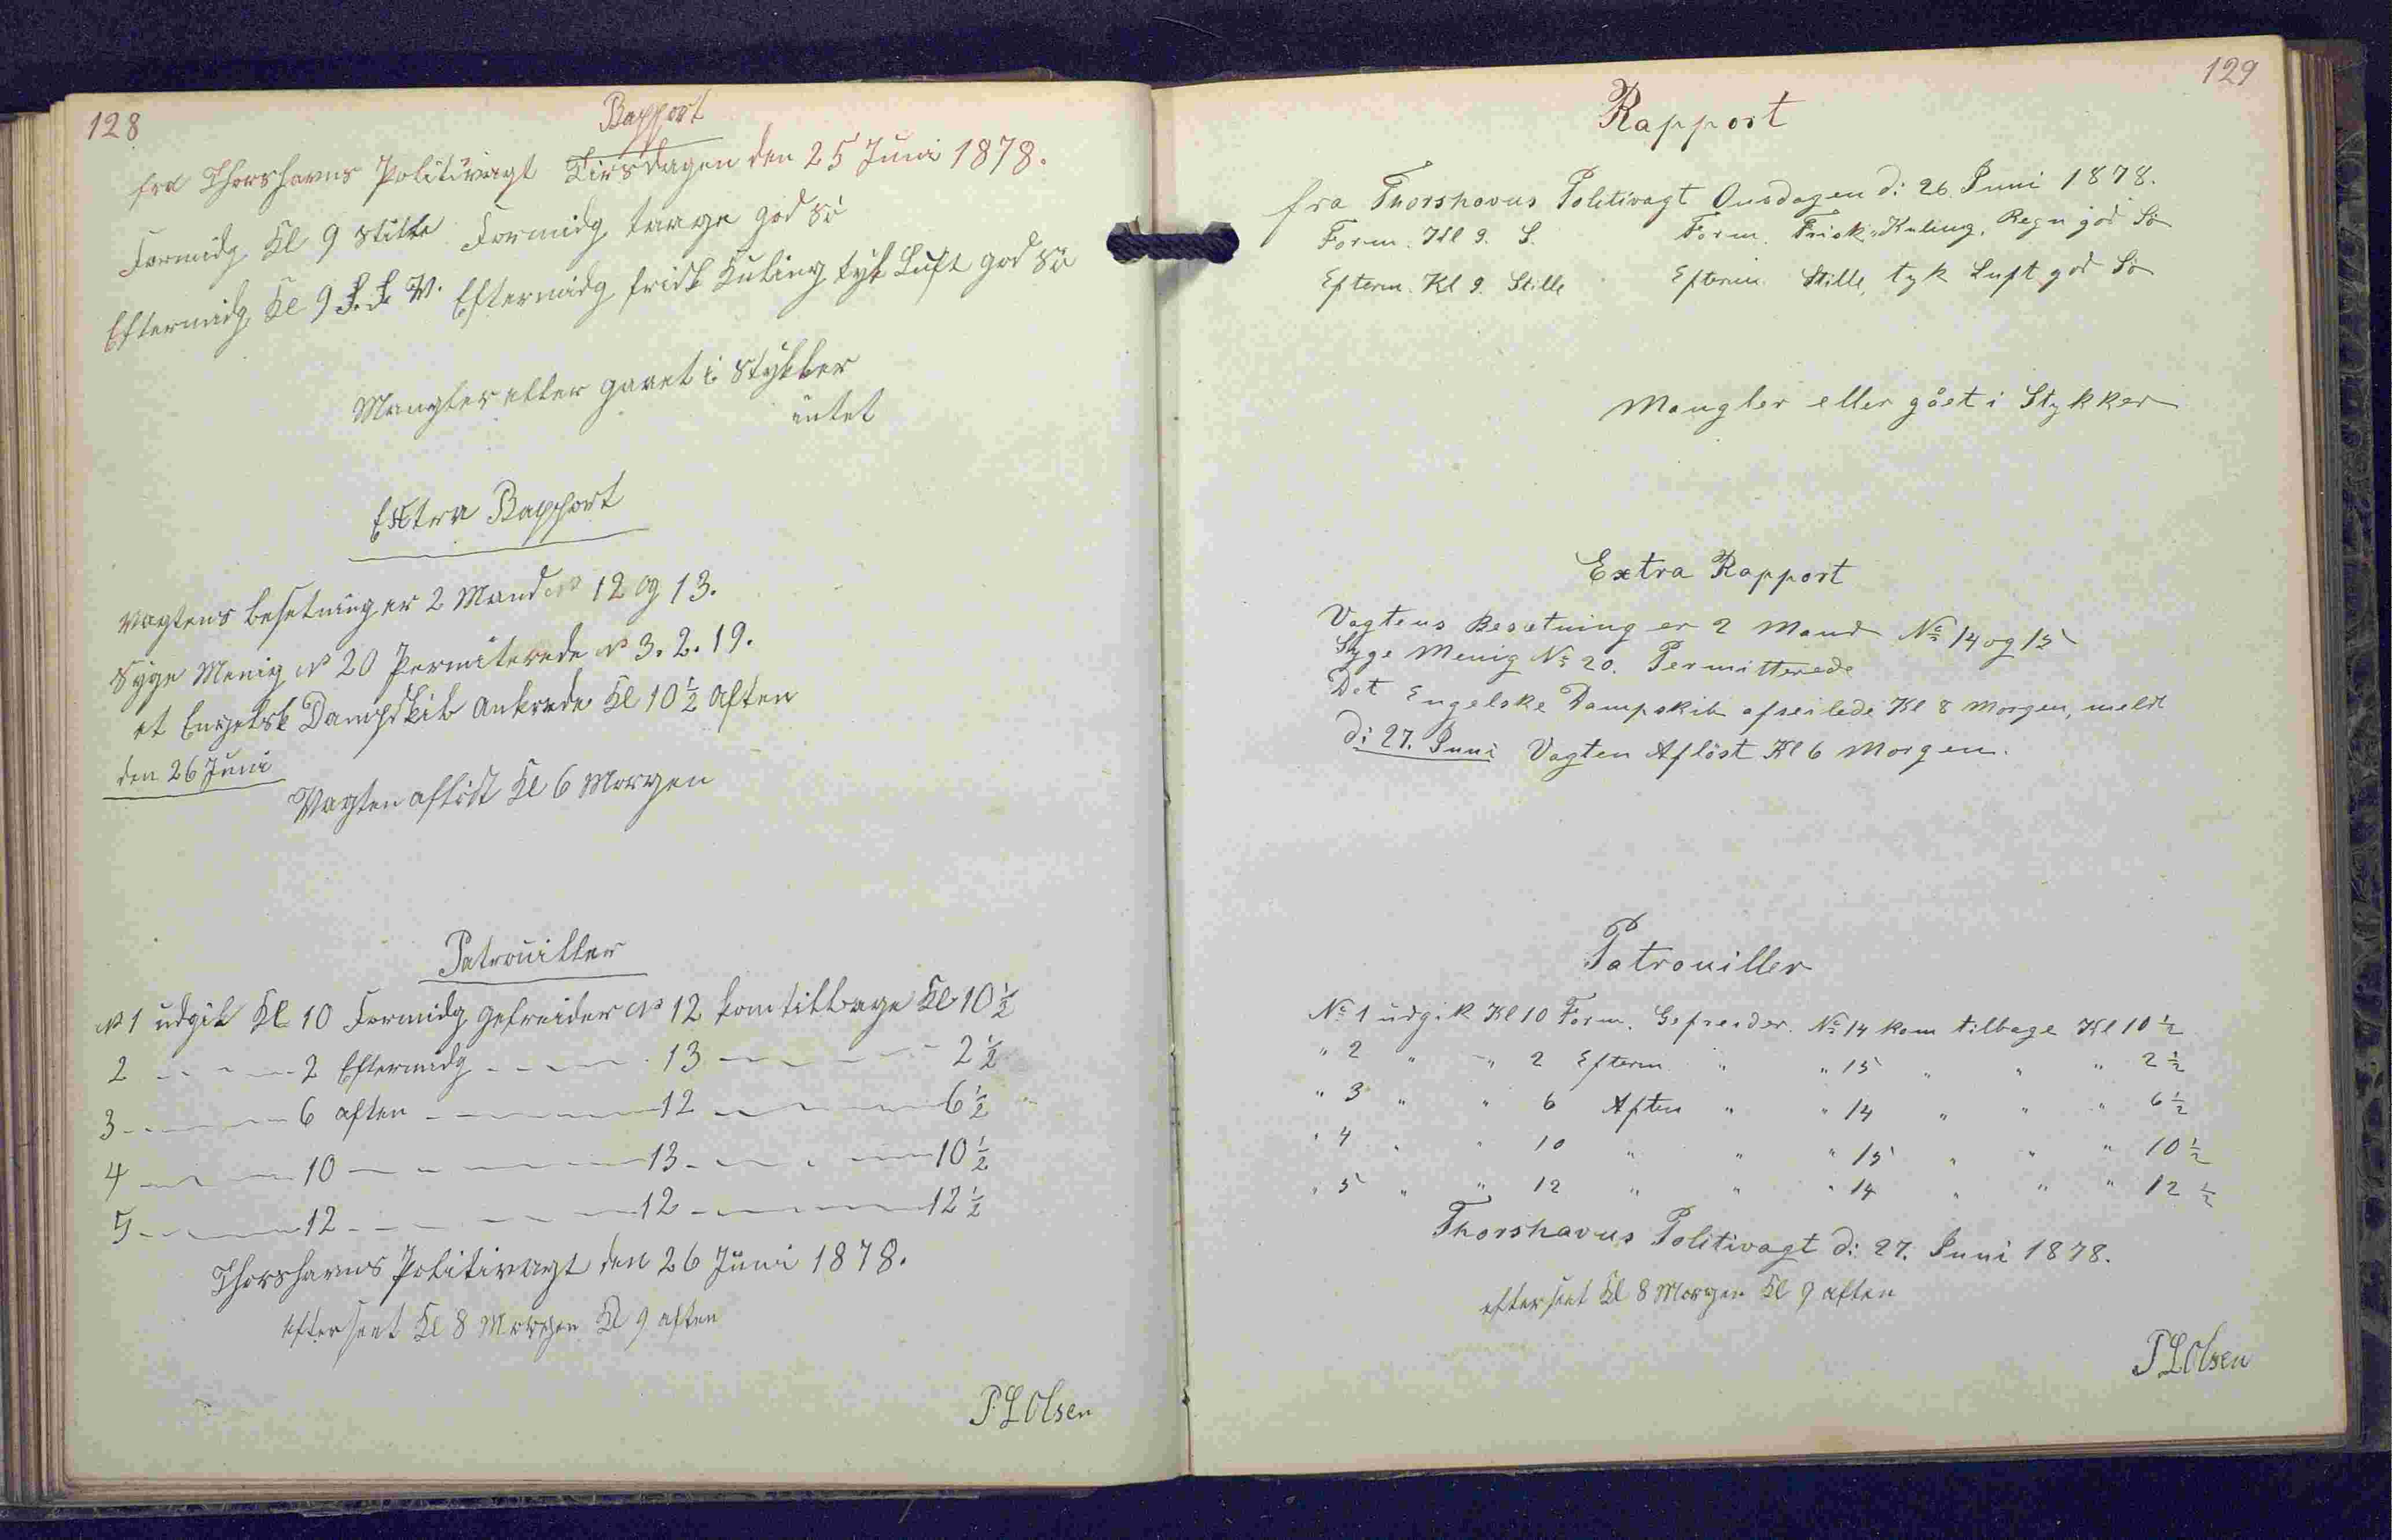 128
Rapport
fra Thorshavns Politivagt Tirsdagen den 25 Juni 1878.
Formidg Kl 9 Stille Formidg taage god Sö
Eftermidg Kl 9 S.S.V. Eftermidg frisk Kuling tyk Luft god Sö
Mangler eller gaaet i Stykker
intet
Extra Rapport
Vagtens besetning er 2 Mand No 12 og 13.
Syge Menig No 20 Permiterede No 3. 2. 19.
et Engelsk Dampskib ankrede Kl 10 1/2 Aften
den 26 Juni
Vagten aflöst Kl 6 Morgen
Patrouiller
No 1 udgik Kl 10 Formidg gefreider No 12 kom tilbage Kl 10 1/2
2 — — 2 Eftermidg — — 13 — — 2 1/2
3 — — 6 aften — — 12 — — 6 1/2
4 — — 10 — — 13 — — 10 1/2
5 — — 12 — — 12 — — 12 1/2
Thorshavns Politivagt den 26 Juni 1878.
efterseet Kl 8 Morgen Kl 9 aften
P. L Olsen
129
Rapport
fra Thorshavns Politivagt Onsdagen d: 26. Juni 1878.
Form. Kl 9. S. Form. Frisk Kuling, Regn god Sö
Efterm. Kl 9. Stille Efterm. Stille, tyk Luft god Sö
Mangler eller gået i Stykker
Extra Rapport
Vagtens Besætning er 2 Mand No 14 og 15
Syge Menig No 20. Permitterede
Det Engelske Dampskib afseilede Kl 8 Morgen, meldt
d: 27. Juni Vagten Aflöst Kl 6 Morgen.
Patrouiller
No 1 udgik Kl 10 Form. Gefreider. No 14 kom tilbage Kl 10 1/2
" 2 " " 2 Efterm " " 15 " " " 2 1/2
" 3 " " 6 Aften " " 14 " " " 6 1/2
" 4 " " 10 " " " 15 " " " 10 1/2
" 5 " " 12 " " " 14 " " " 12 1/2
Thorshavns Politivagt d: 27. Juni 1878.
efterseet Kl 8 Morgen Kl 9 aften
P. L Olsen